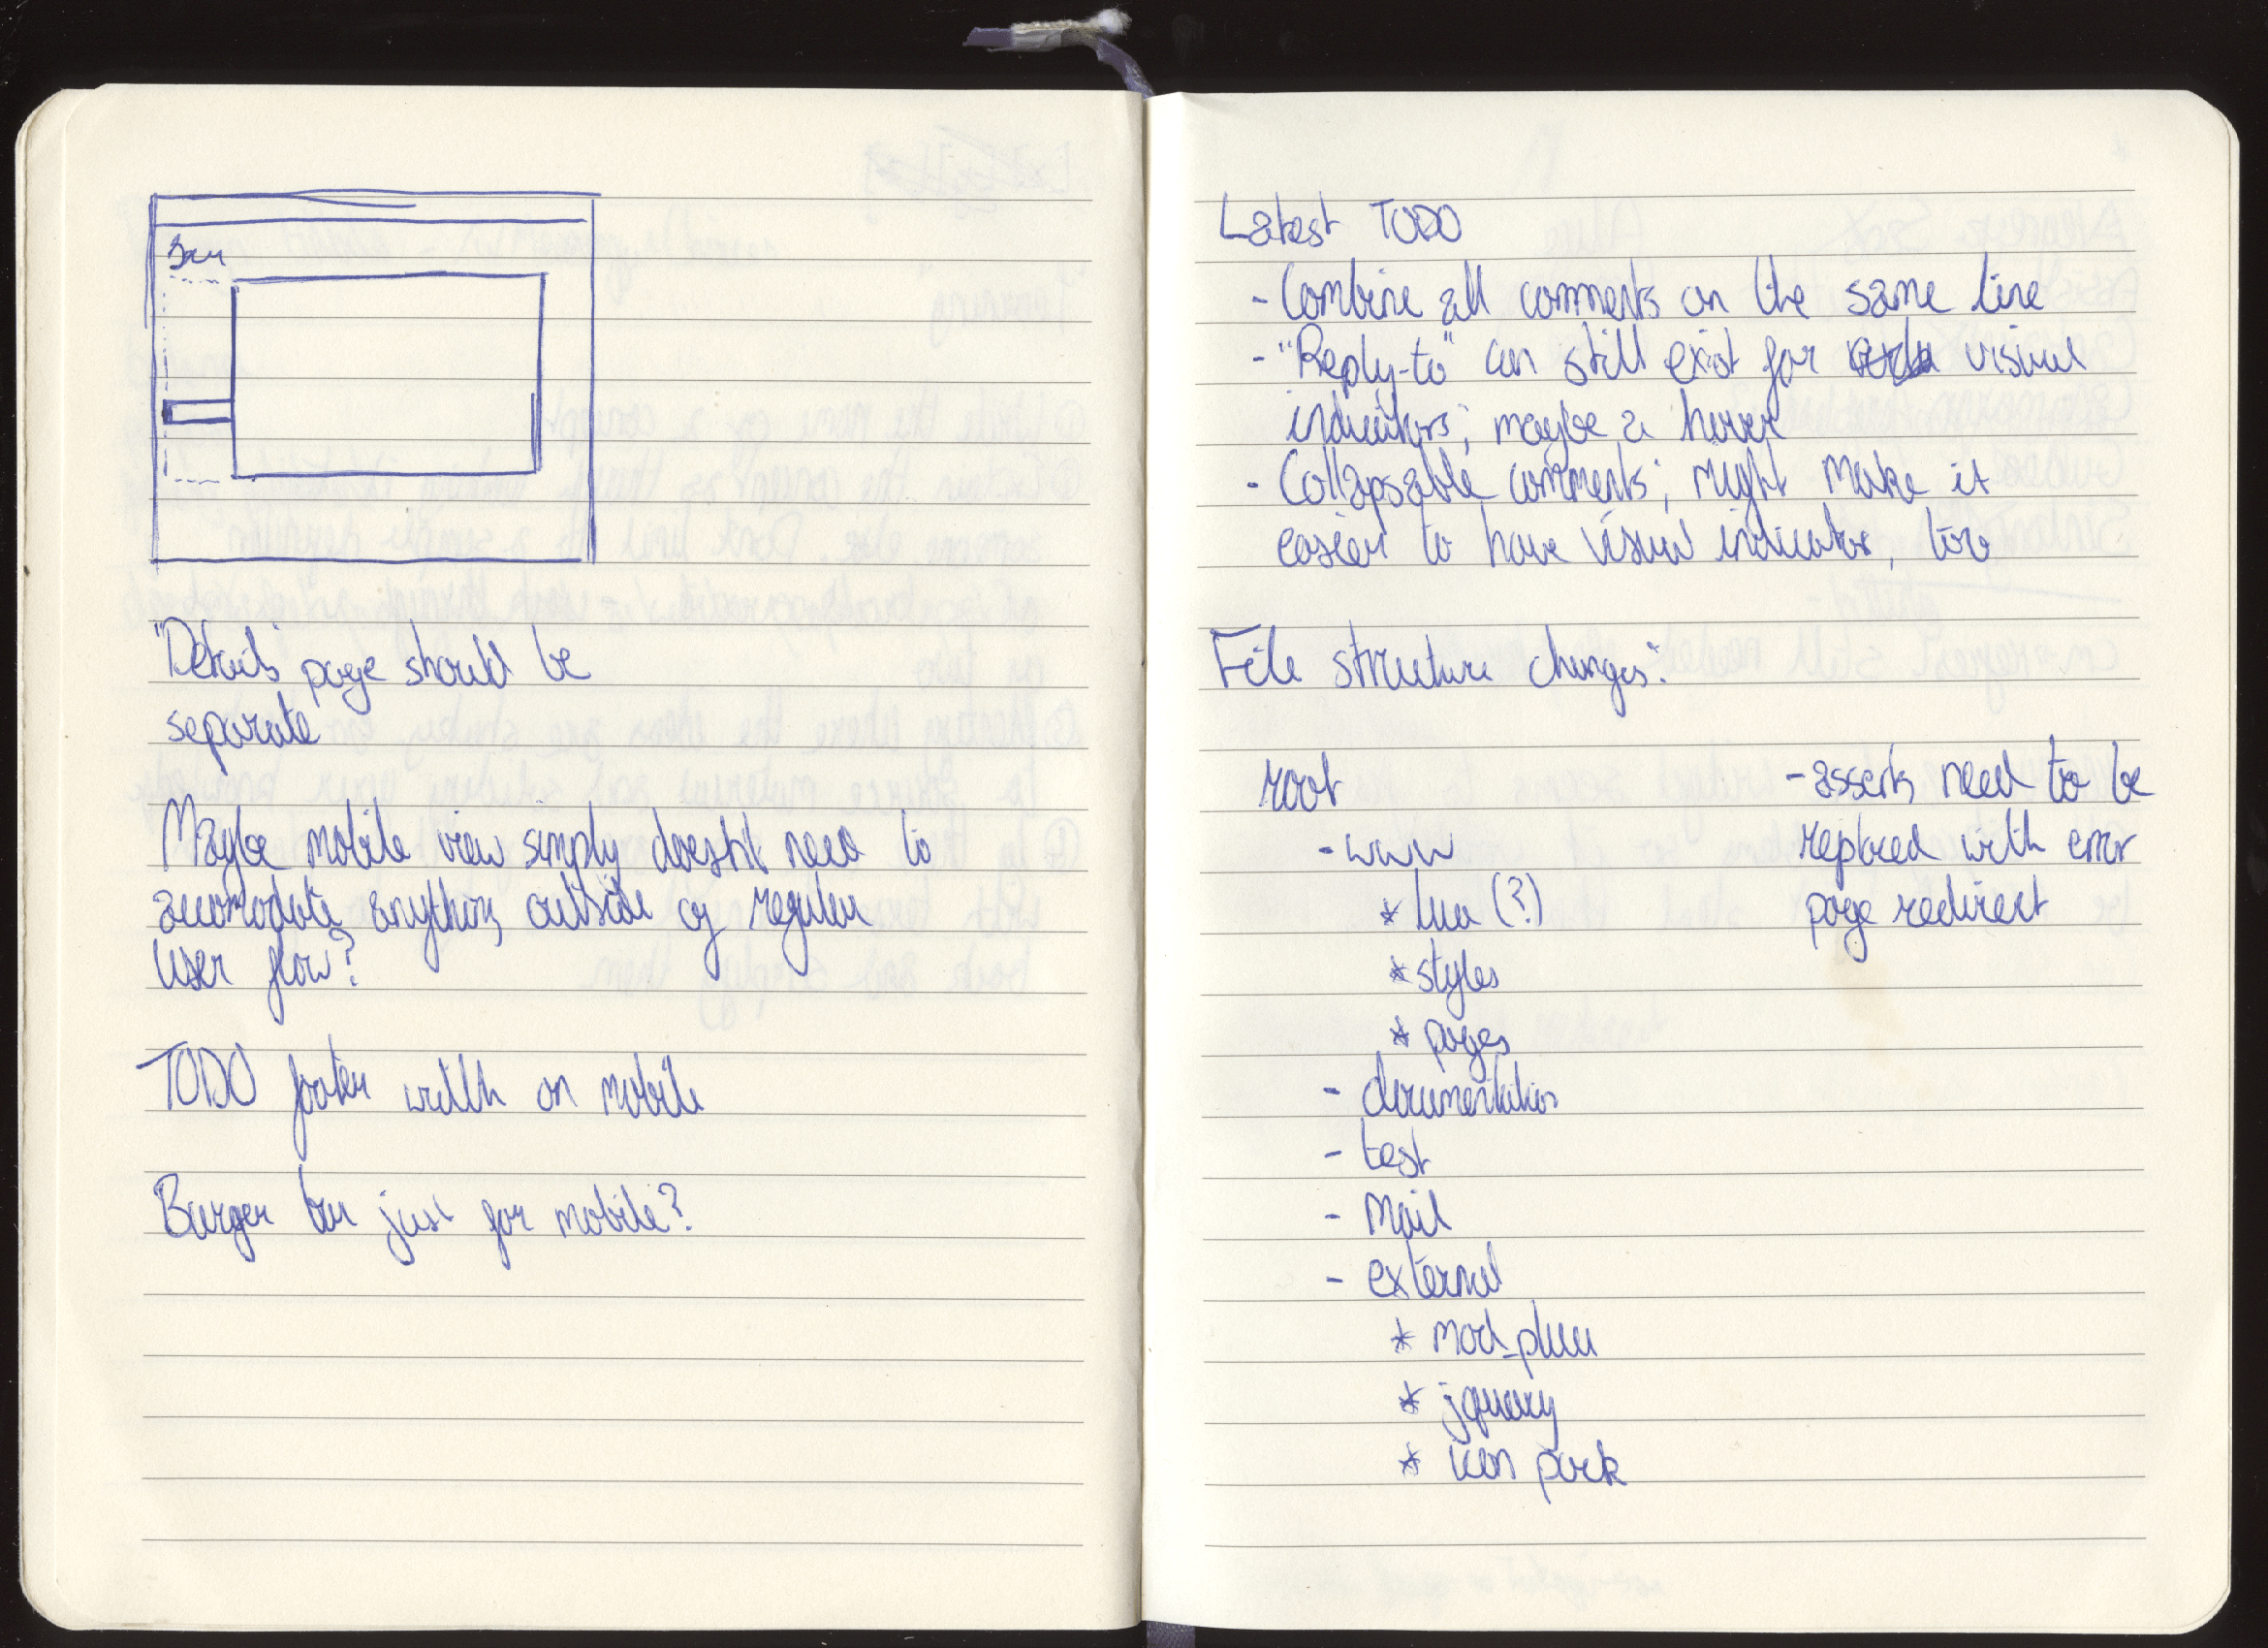 "Details" page should be
separate
Maybe mobile view simply doesn't need to
accomodate anything outside of regular
user flow?
TODO footer width on mobile
Burger bar just for mobile?
Latest TODO
- Combine all comments on the same line
- "Reply-to" can still exist for visual
indicators; maybe a hover
- Collapsable comments; might make it
easier to have visual indicator, too
File structure changes:
root
- www
* lua (?)
* styles
* pages
- documentation
- test
- mail
- external
* mod_plua
* jquery
* icon pack
- asserts need to be
replaced with error
page redirect